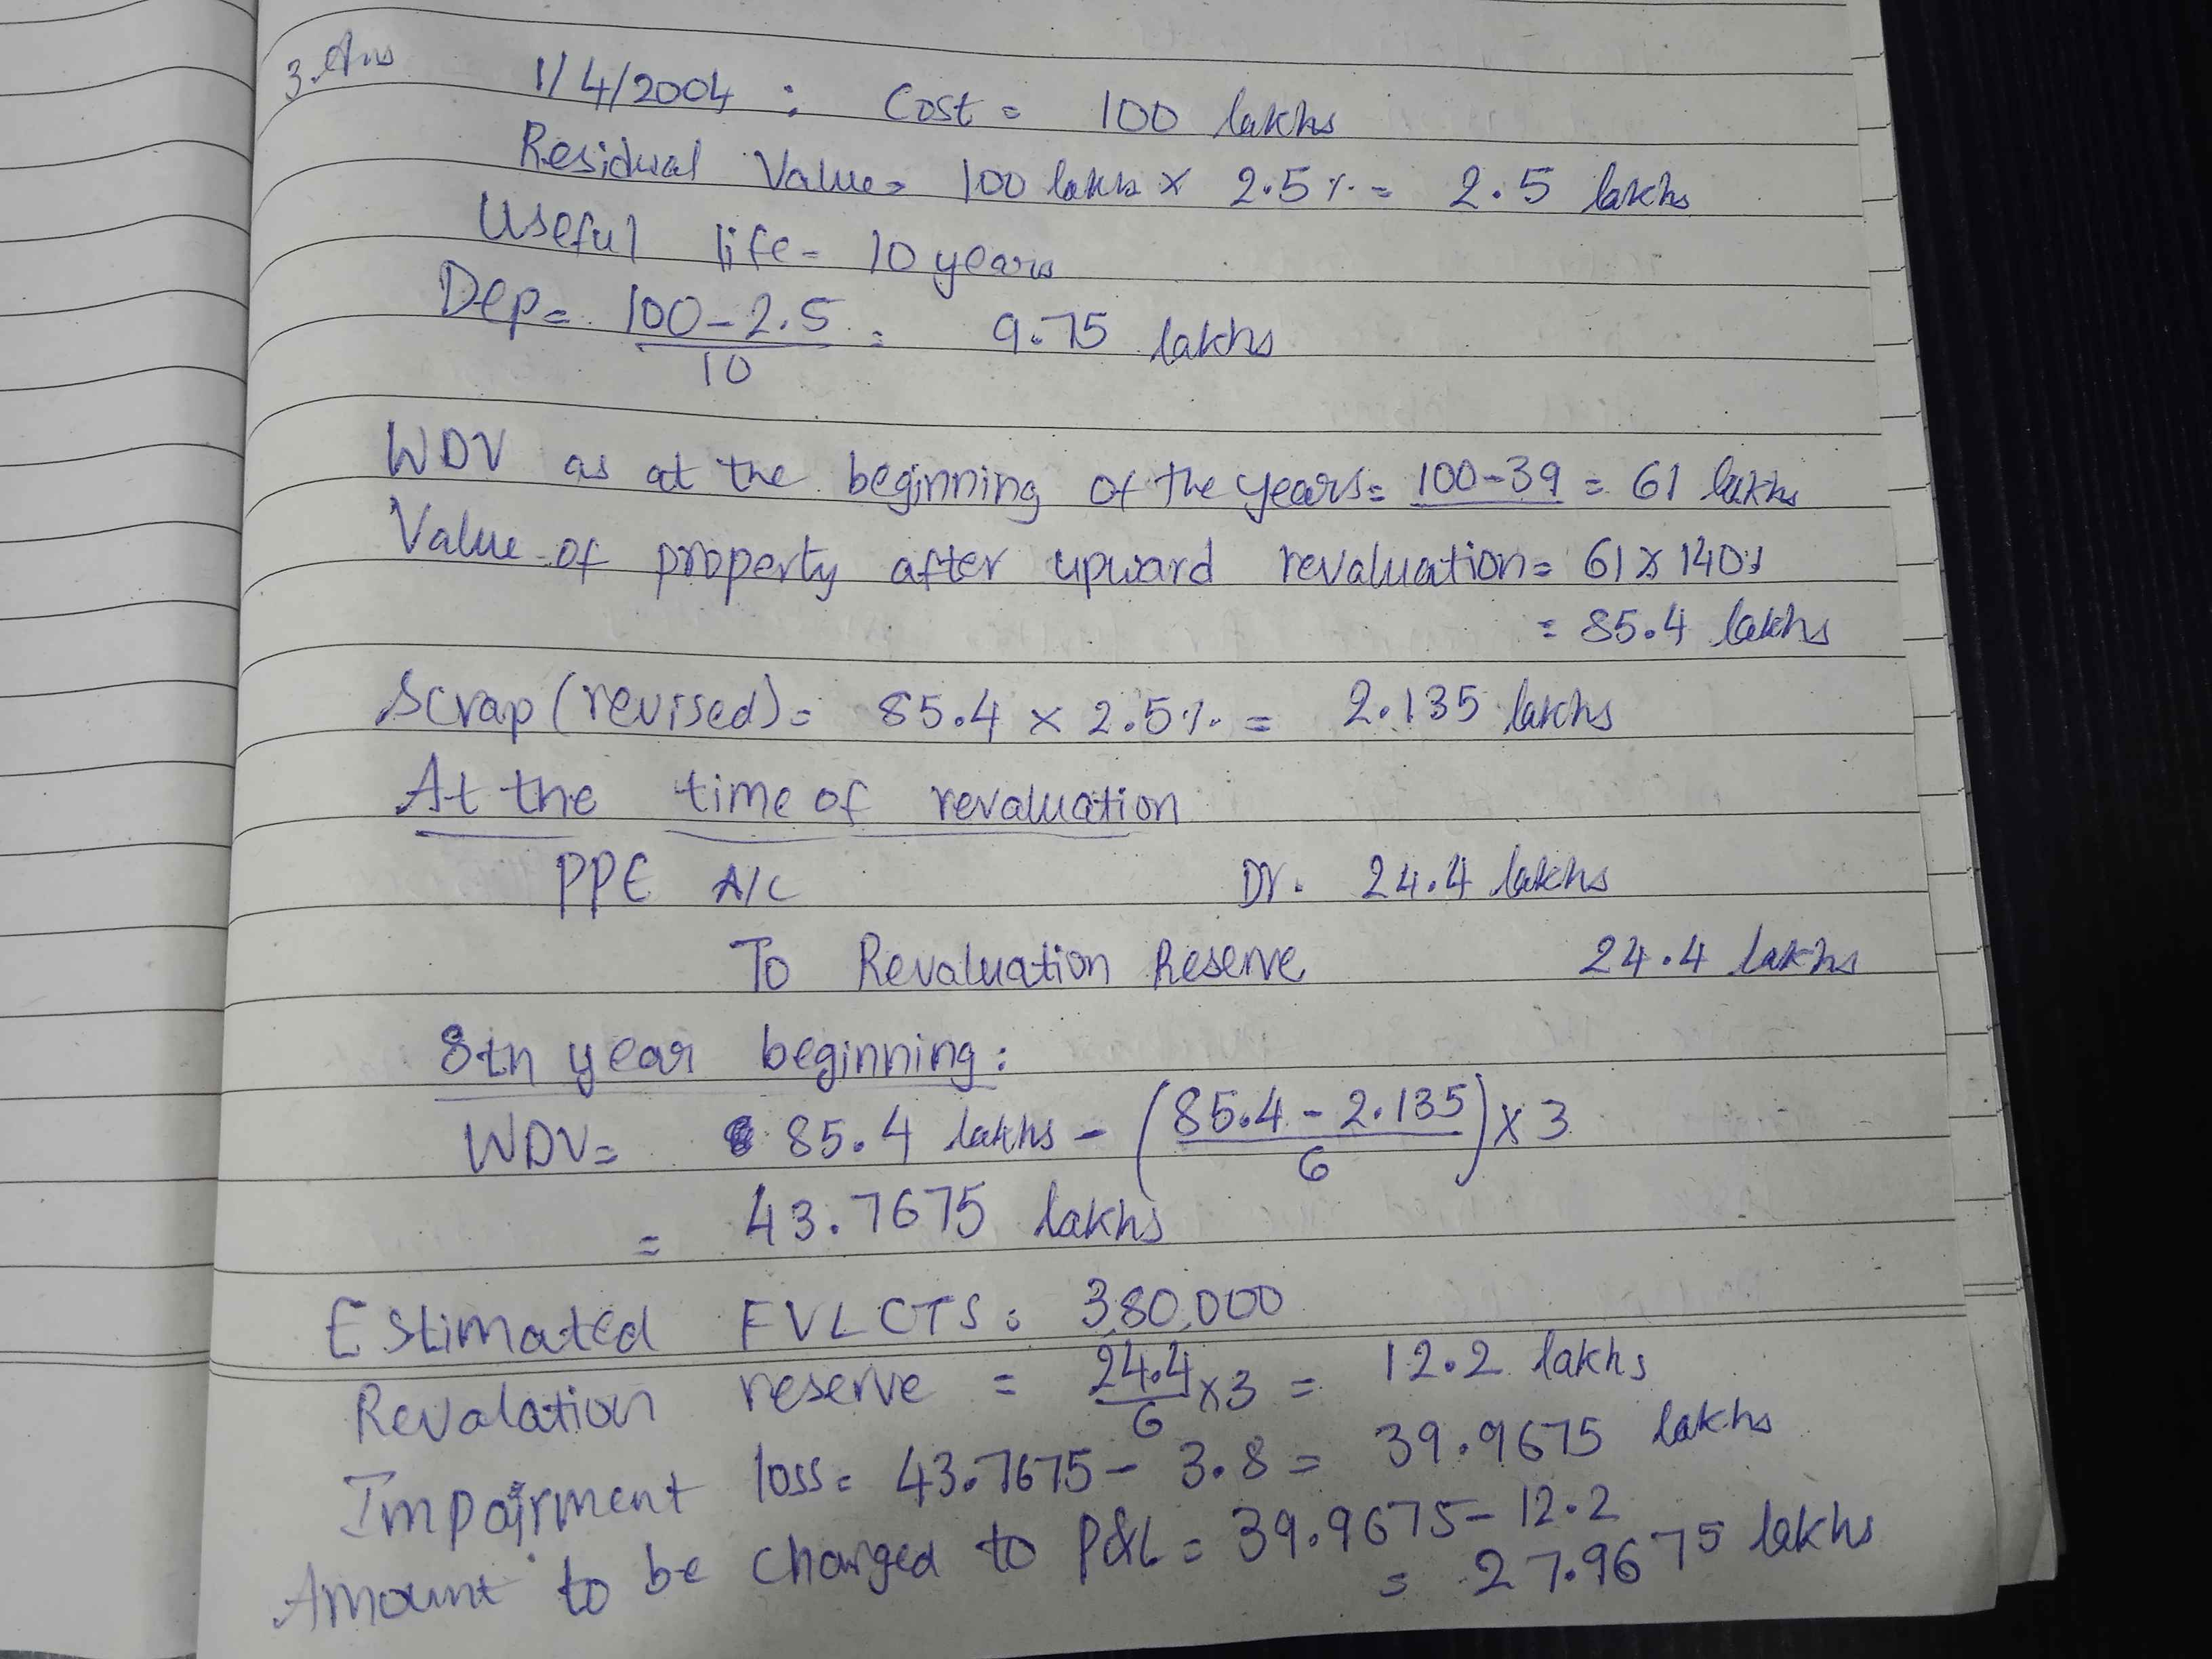 3. Ans
1/4/2004 : Cost = 100 lakhs
Residual Value = 100 lakhs x 2.5% = 2.5 lakhs
Useful life = 10 years
Dep = 100 - 2.5 / 10 = 9.75 lakhs
WDV as at the beginning of the years = 100-39 = 61 lakhs
Value of property after upward revaluation = 61 x 140%
= 85.4 lakhs
Scrap (revised) = 85.4 x 2.5% = 2.135 lakhs
At the time of revaluation
PPE A/C Dr. 24.4 lakhs
To Revaluation Reserve 24.4 lakhs
8th year beginning:
WDV = 85.4 lakhs - (85.4 - 2.135 / 6) x 3
= 43.7675 lakhs
Estimated FVLCTS = 380,000
Revalation reserve = 24.4 / 6 x 3 = 12.2 lakhs
Impairment loss = 43.7675 - 3.8 = 39.9675 lakhs
Amount to be charged to P&L = 39.9675 - 12.2
= 27.9675 lakhs